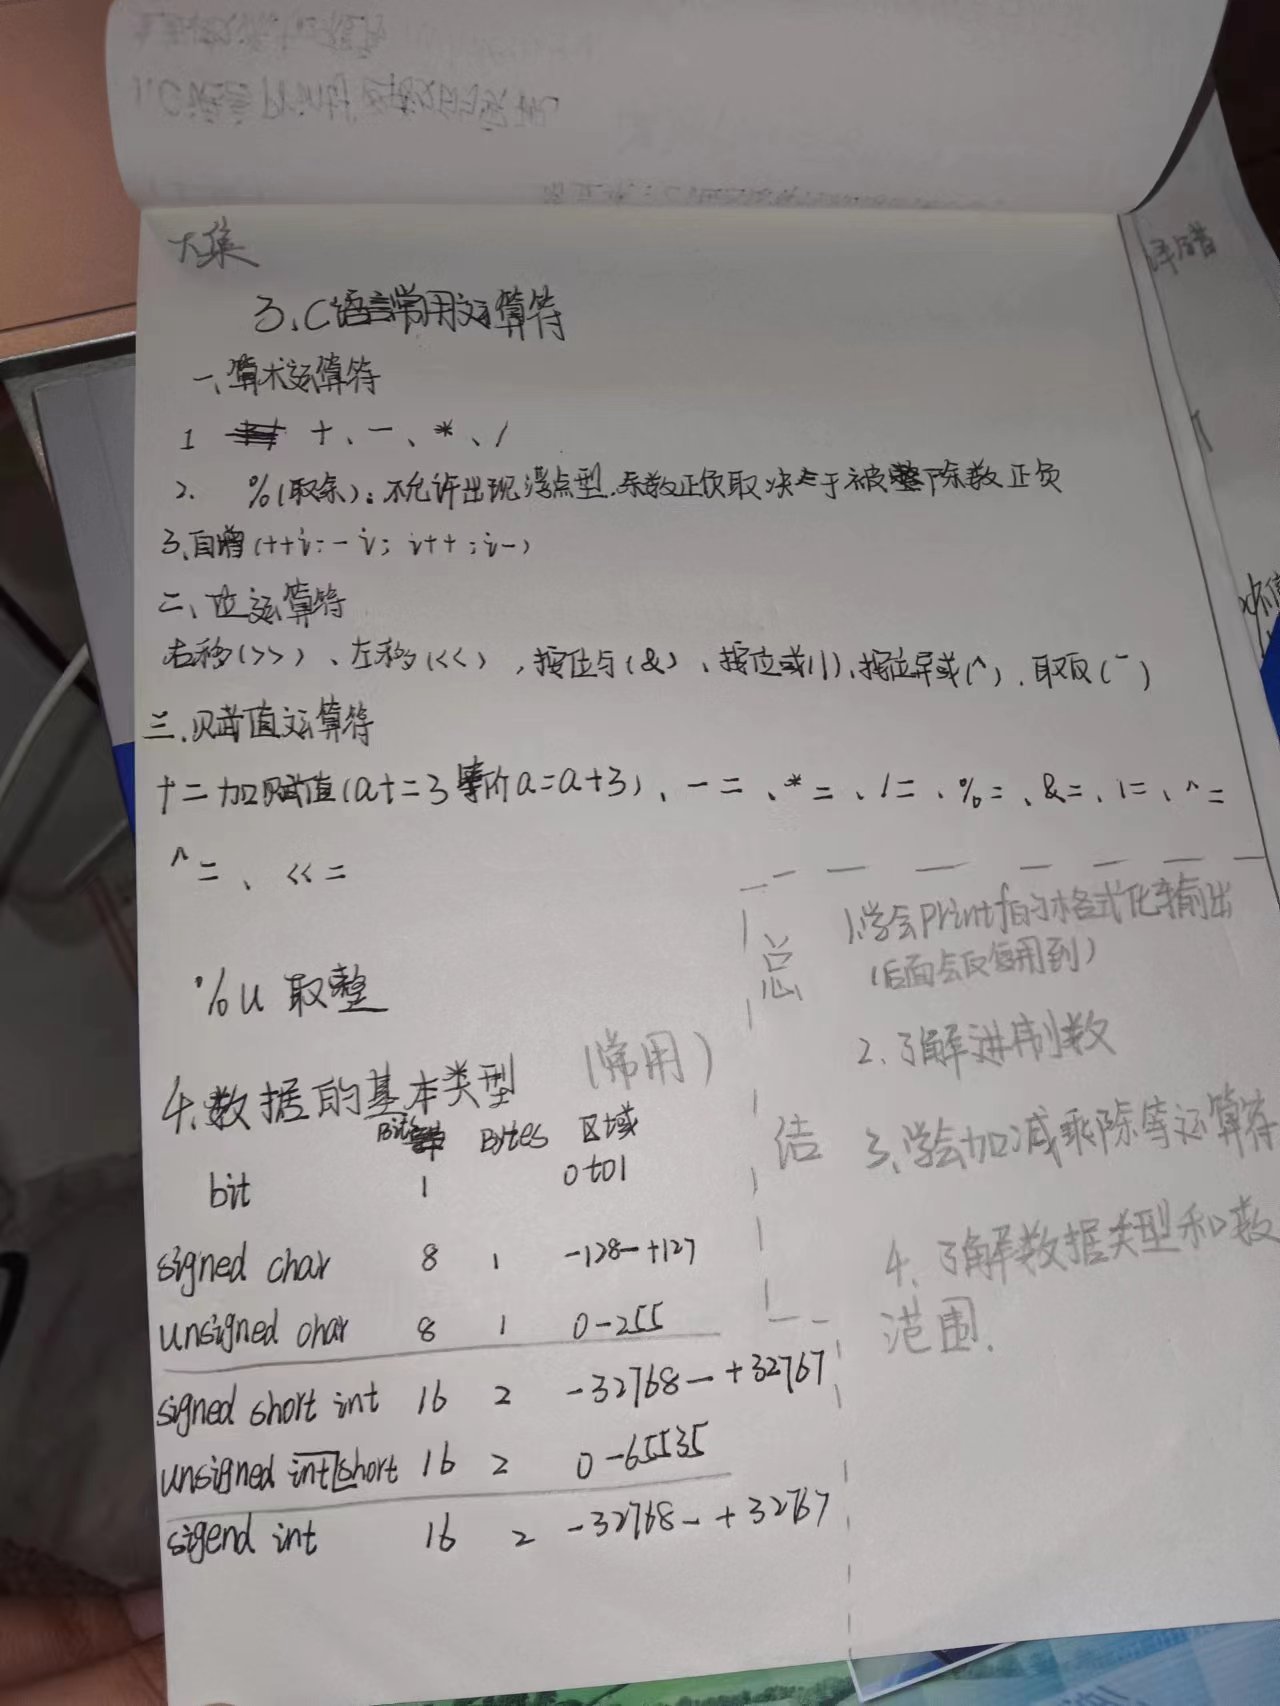 大集
3、C语言常用运算符
一、算术运算符
1 +、-、*、/
2. %(取余):不允许出现浮点型.余数正负取决于被除数正负
3、自增(++i:-i; i++;i-)
二、位运算符
右移(>>)、左移(<<),按位与(&)、按位或(|)、按位异或(^).取反(~)
三.赋值运算符
+=加赋值(a+=3等价a=a+3)、-=、*=、/=、%=、&=、|=、^=
^=、<<=
%u 取整
4.数据的基本类型 (常用)
Bits Bytes 区域
bit 1 0to1
signed char 8 1 -128-+127
unsigned char 8 1 0-255
signed short int 16 2 -32768-+32767
unsigned int short 16 2 0-65535
sigend int 16 2 -32768-+32767
总结
1.学会printf的格式化输出
(后面会反复用到)
2.了解进制数
3、学会加减乘除等运算符
4.了解数据类型和数
范围.